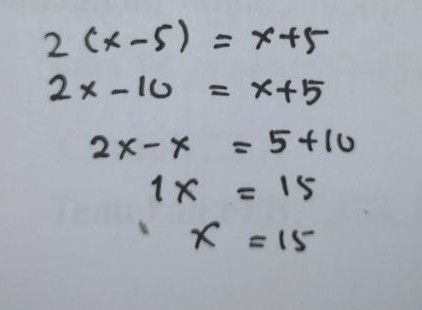 2 (x-5) = x+5
2x-10 = x+5
2x-x = 5+10
1x = 15
x = 15